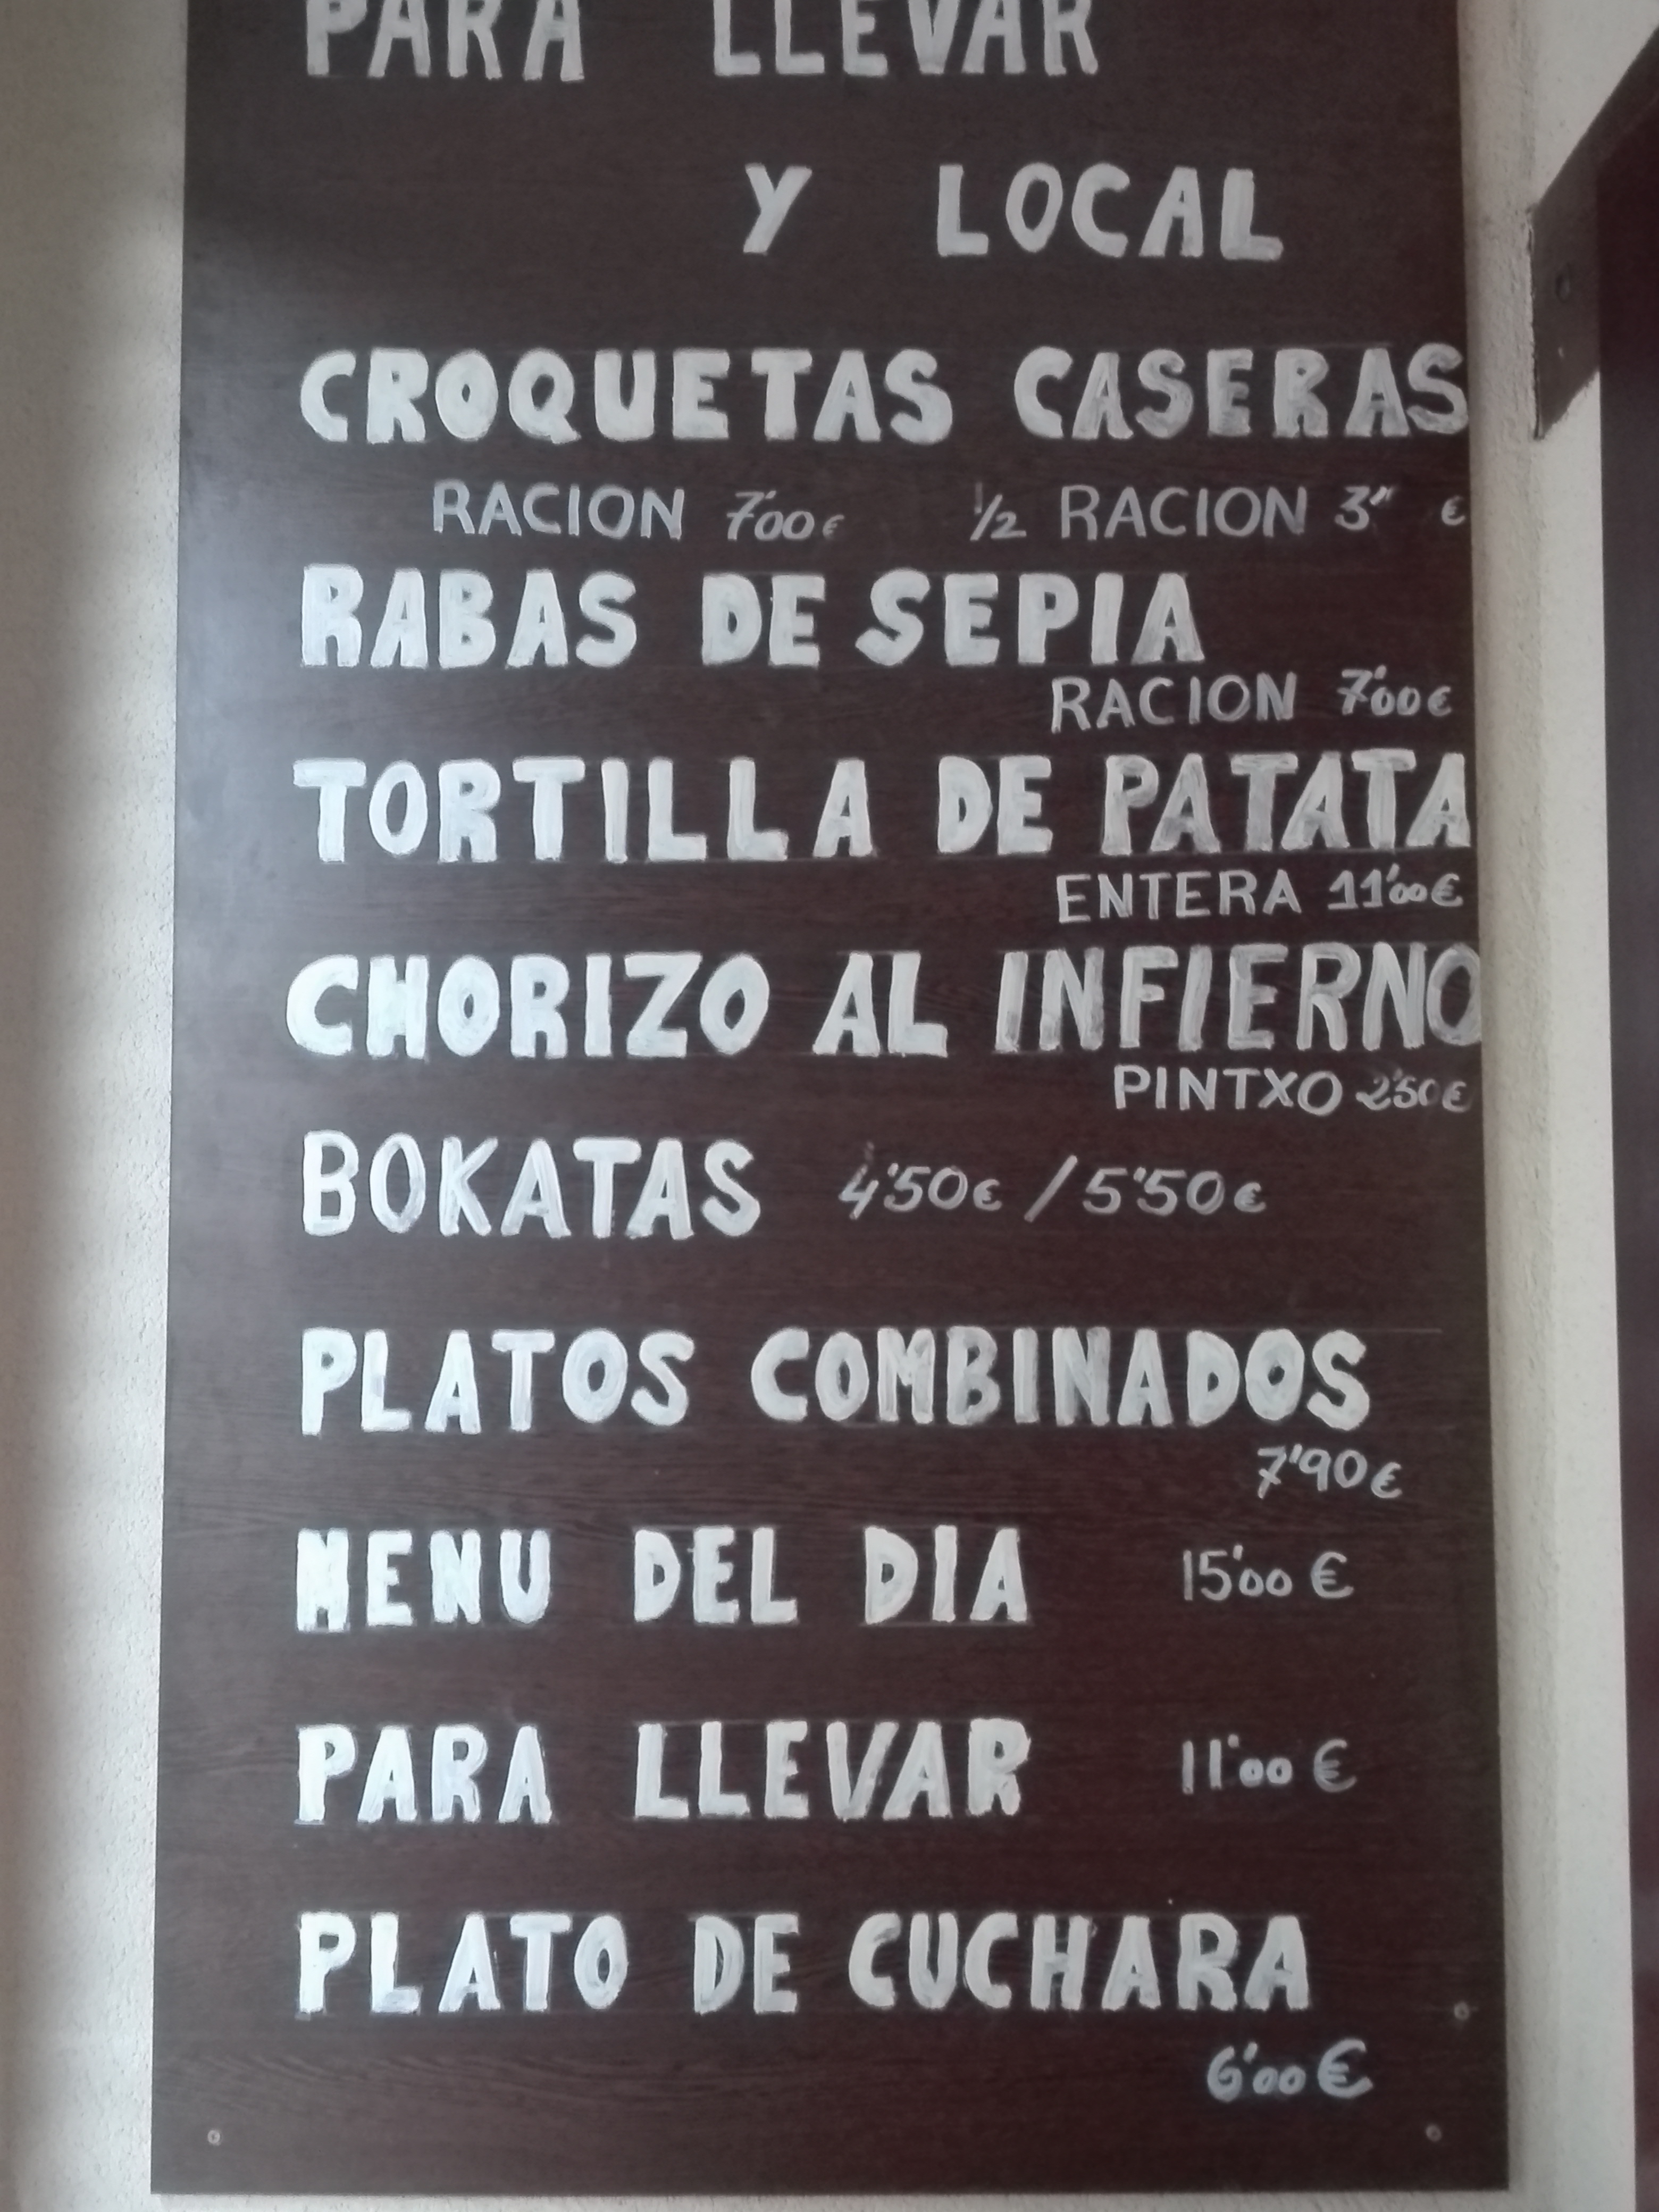 PARA LLEVAR
Y LOCAL
CROQUETAS CASERAS
RACION 7'00€ 1/2 RACION 3" €
RABAS DE SEPIA
RACION 7'00€
TORTILLA DE PATATA
ENTERA 11'00€
CHORIZO AL INFIERNO
PINTXO 2'50€
BOKATAS 4'50€ / 5'50€
PLATOS COMBINADOS
7'90€
MENU DEL DIA 15'00 €
PARA LLEVAR 11'00 €
PLATO DE CUCHARA
6'00 €